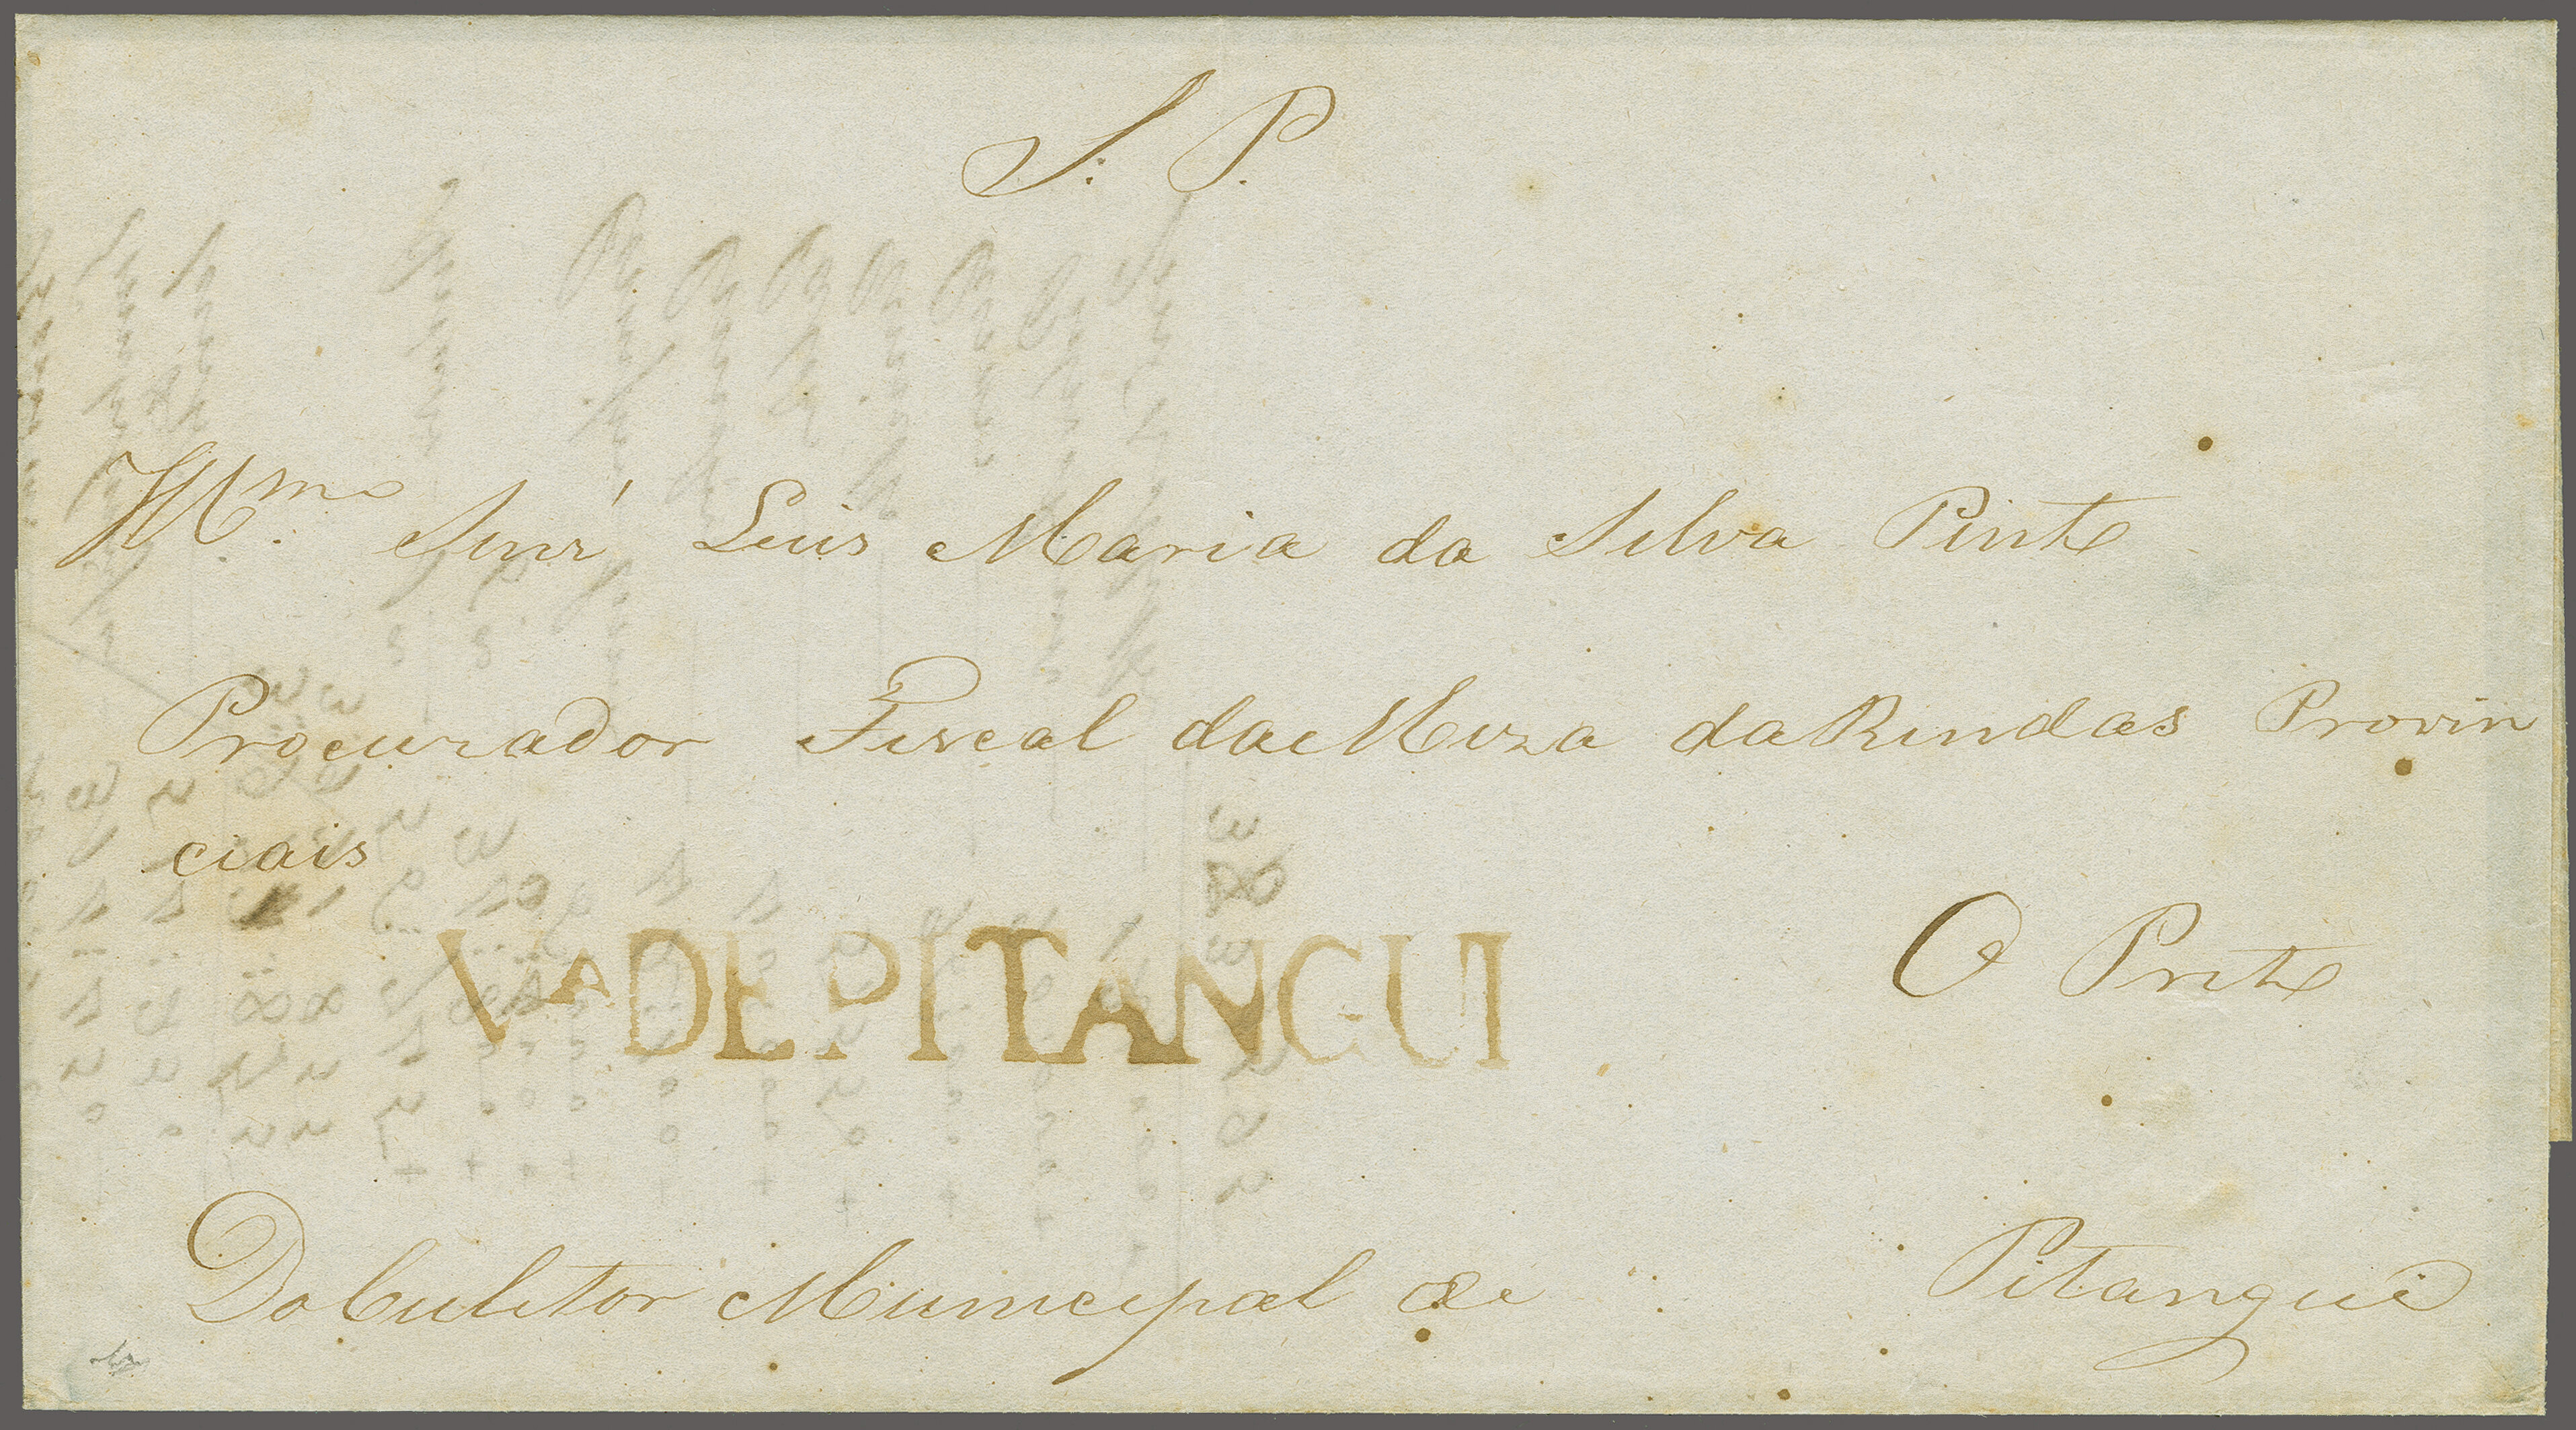 S. P.
Illmo. Snr' Luis Maria da Silva Pinto
Procurador Fiscal da Meza da Rendas Provin
ciais
VA DE PITANGUI
O Preto
Do Culetor Municipal de Pitangui